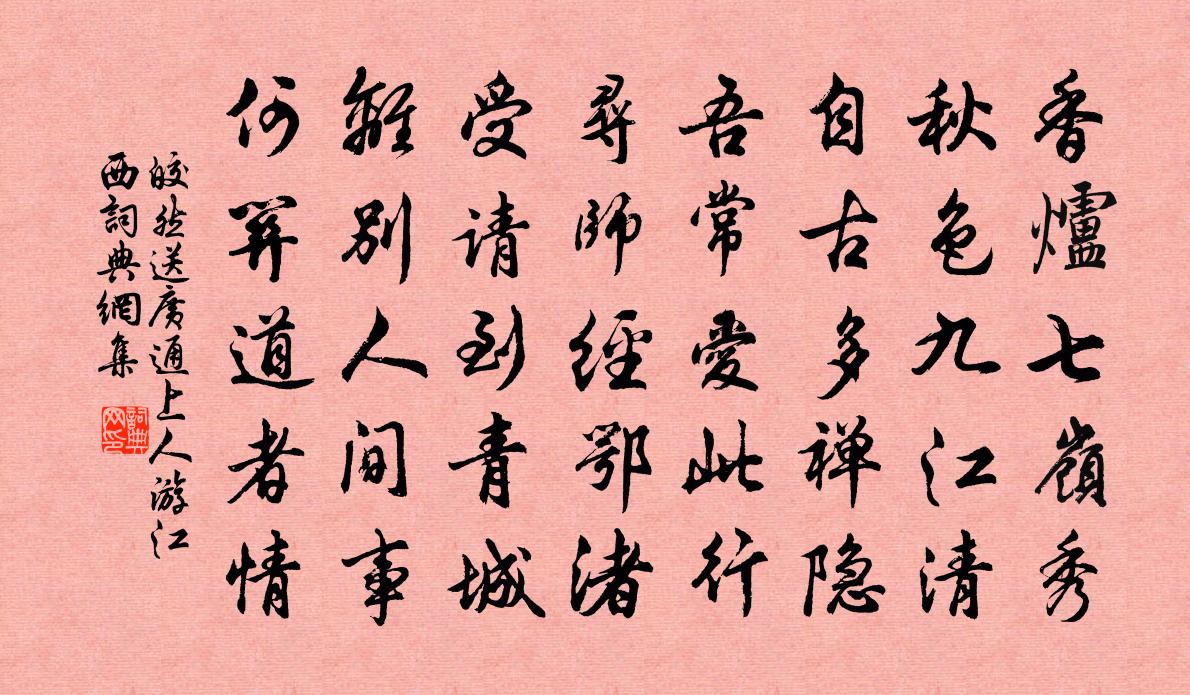 香爐七嶺秀
秋色九江清
自古多禅隐
吾常愛此行
尋師經鄂渚
受请到青城
離别人间事
何關道者情
皎然送廣通上人游江
西詞典網集
詞典网印